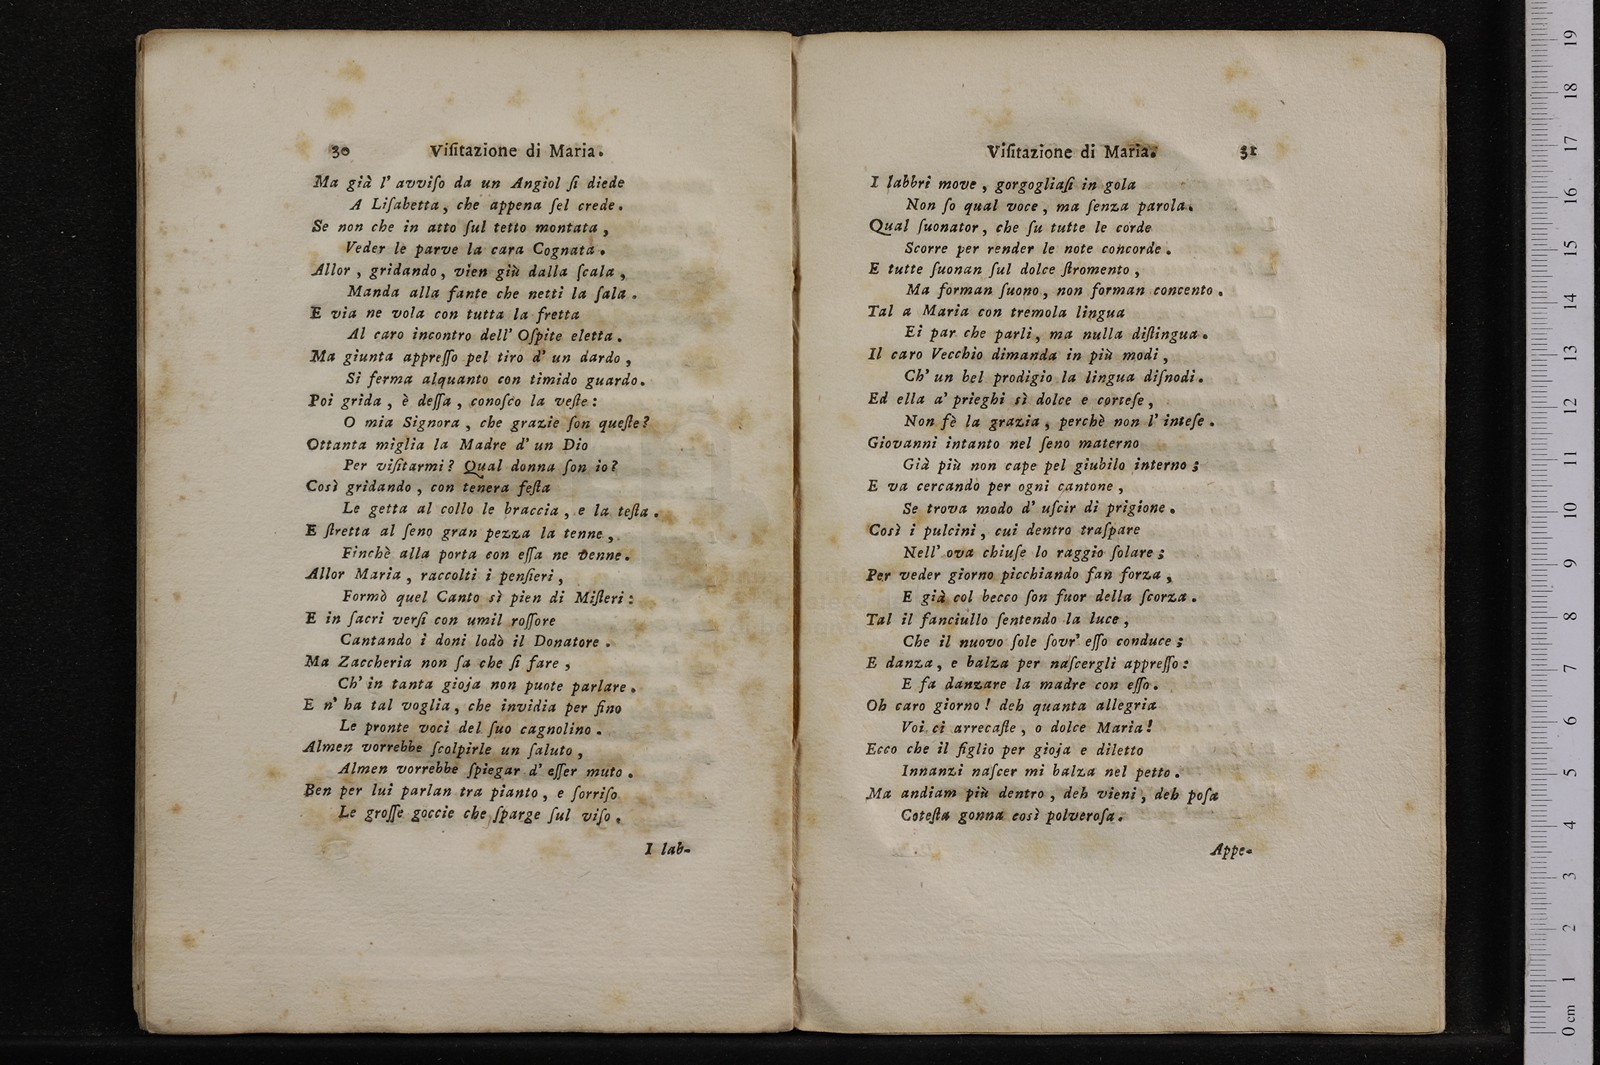 30 Viſitazione di Maria.
Ma già l' avviſo da un Angiol ſi diede
A Liſabetta, che appena ſel crede.
Se non che in atto ſul tetto montata,
Veder le parve la cara Cognata.
Allor, gridando, vien giù dalla ſcala,
Manda alla fante che netti la ſala.
E via ne vola con tutta la fretta
Al caro incontro dell' Oſpite eletta.
Ma giunta appreſſo pel tiro d' un dardo,
Si ferma alquanto con timido guardo.
Poi grida, è deſſa, conoſco la veſte:
O mia Signora, che grazie ſon queſte?
Ottanta miglia la Madre d' un Dio
Per viſitarmi? Qual donna ſon io?
Così gridando, con tenera feſta
Le getta al collo le braccia, e la teſta.
E ſtretta al ſeno gran pezza la tenne,
Finchè alla porta con eſſa ne venne.
Allor Maria, raccolti i penſieri,
Formò quel Canto sì pien di Miſteri:
E in ſacri verſi con umil roſſore
Cantando i doni lodò il Donatore.
Ma Zaccheria non ſa che ſi fare,
Ch' in tanta gioja non puote parlare.
E n' ha tal voglia, che invidia per fino
Le pronte voci del ſuo cagnolino.
Almen vorrebbe ſcolpirle un ſaluto,
Almen vorrebbe ſpiegar d' eſſer muto.
Ben per lui parlan tra pianto, e ſorriſo
Le groſſe goccie che ſparge ſul viſo.
I lab-
Viſitazione di Maria. 31
I labbri move, gorgogliaſi in gola
Non ſo qual voce, ma ſenza parola.
Qual ſuonator, che ſu tutte le corde
Scorre per render le note concorde.
E tutte ſuonan ſul dolce ſtromento,
Ma forman ſuono, non forman concento.
Tal a Maria con tremola lingua
Ei par che parli, ma nulla diſtingua.
Il caro Vecchio dimanda in più modi,
Ch' un bel prodigio la lingua diſnodi.
Ed ella a' prieghi sì dolce e corteſe,
Non fè la grazia, perchè non l' inteſe.
Giovanni intanto nel ſeno materno
Già più non cape pel giubilo interno;
E va cercando per ogni cantone,
Se trova modo d' uſcir di prigione.
Così i pulcini, cui dentro traſpare
Nell' ova chiuſe lo raggio ſolare;
Per veder giorno picchiando fan forza,
E già col becco ſon fuor della ſcorza.
Tal il fanciullo ſentendo la luce,
Che il nuovo ſole ſovr' eſſo conduce;
E danza, e balza per naſcergli appreſſo:
E fa danzare la madre con eſſo.
Oh caro giorno! deh quanta allegria
Voi ci arrecaſte, o dolce Maria!
Ecco che il figlio per gioja e diletto
Innanzi naſcer mi balza nel petto.
Ma andiam più dentro, deh vieni, deh poſa
Coteſta gonna così polveroſa.
Appe-
0 cm 1 2 3 4 5 6 7 8 9 10 11 12 13 14 15 16 17 18 19